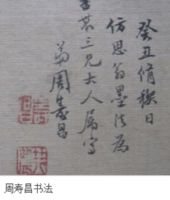 癸丑脩禊日
仿思翁墨法為
苕三兄大人属写
弟周寿昌
周寿昌书法